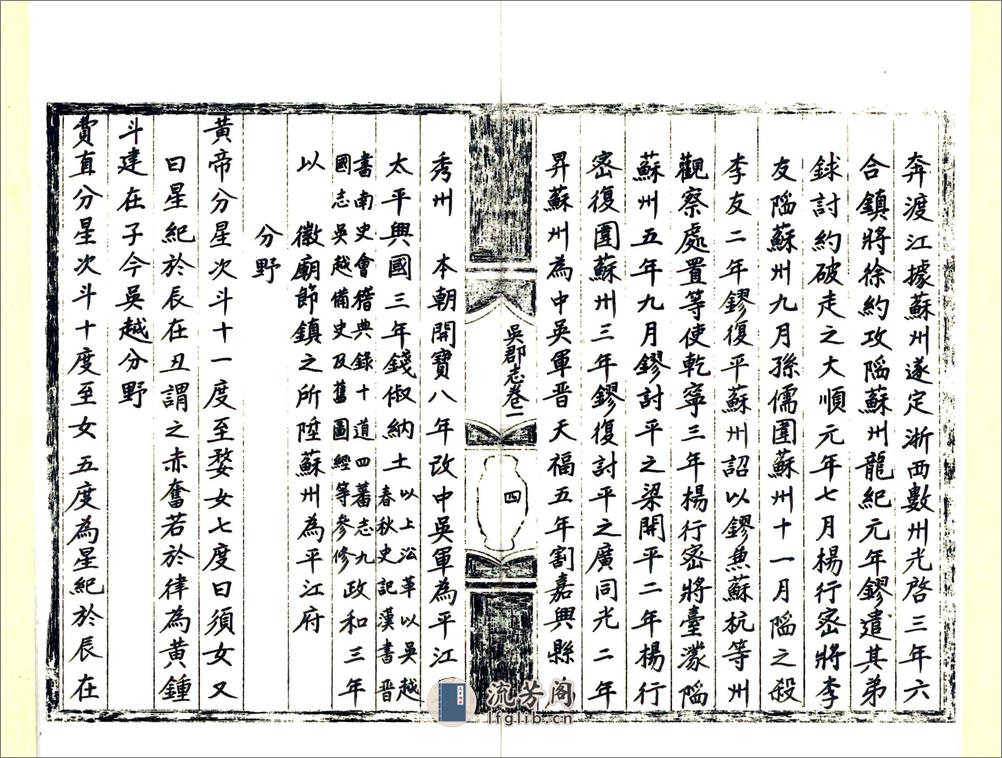 奔渡江據蘇州遂定浙西數州光啓三年六
合鎮將徐約攻陷蘇州龍紀元年鏐遣其弟
銶討約破走之大順元年七月楊行密將李
友陷蘇州九月孫儒圍蘇州十一月陷之殺
李友二年鏐復平蘇州詔以鏐兼蘇杭等州
觀察處置等使乾寧三年楊行密將臺濛陷
蘇州五年九月鏐討平之梁開平二年楊行
密復圍蘇州三年鏐復討平之廣同光二年
昇蘇州為中吳軍晋天福五年割嘉興縣
吳郡志卷二
四
秀州 本朝開寶八年改中吳軍為平江
太平興國三年錢俶納土以上沿革以吳越春秋史記漢書晋
書南史會稽典錄十道四蕃志九
國志吳越備史及舊圖經等參修政和三年
以 徽廟節鎮之所陞蘇州為平江府
分野
黃帝分星次斗十一度至婺女七度曰須女又
曰星紀於辰在丑謂之赤奮若於律為黃鍾
斗建在子今吳越分野
費直分星次斗十度至女五度為星紀於辰在
流芳阁
lfglib.cn